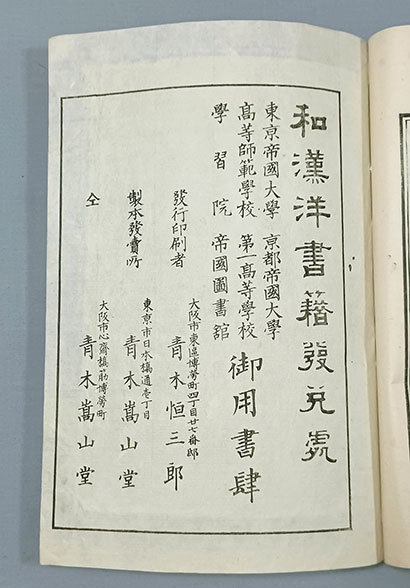 和漢洋書籍發兌處
東京帝國大學 京都帝國大學
高等師範學校 第一高等學校
學習院 帝國圖書館
御用書肆
發行印刷者
大阪市東區博勞町四丁目廿七番邸
青木恒三郎
製本發賣所
東京市日本橋通壱丁目
青木嵩山堂
仝
大阪市心齋橋筋博勞町
青木嵩山堂